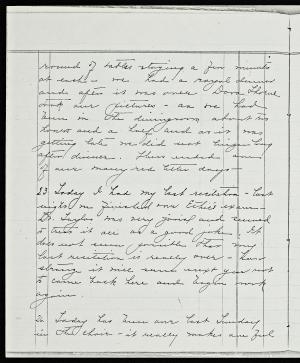 round of tables staying a few minutes
at each - we had a royal dinner
and after it was over Dora Thorne
took our pictures - as we had
been in the diningroom about two
hours and a half and as it was
getting late we did not linger long
after dinner. Thus ended one
of our many red letter days -
23 Today I had my last recitation - last
night we finished our Ethics exam
Dr. Taylor was very jovial and seemed
to treat it all as a good joke. It
does not seem possible that my
last recitation is really over - how
strange it will seem next year not
to come back here and begin work
again.
24 Today has been our last Sunday
in the choir - it really makes me feel